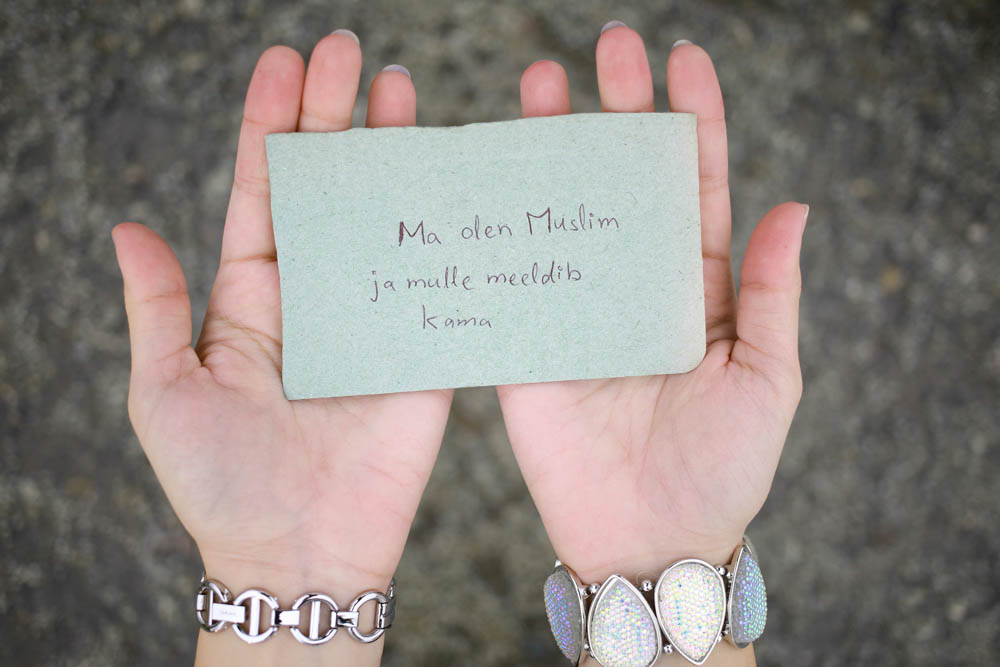 Ma olen Muslim
ja mulle meeldib
kama